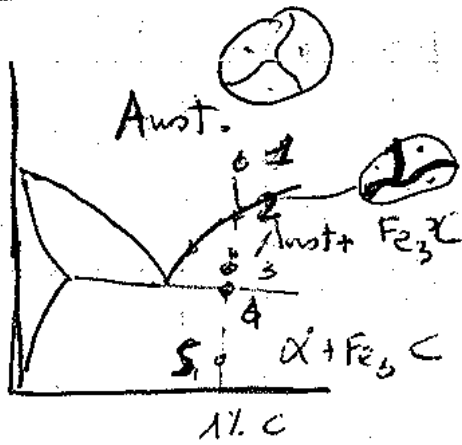 Aust.
1
2
Aust + Fe3C
3
4
5
α + Fe3 C
1% C